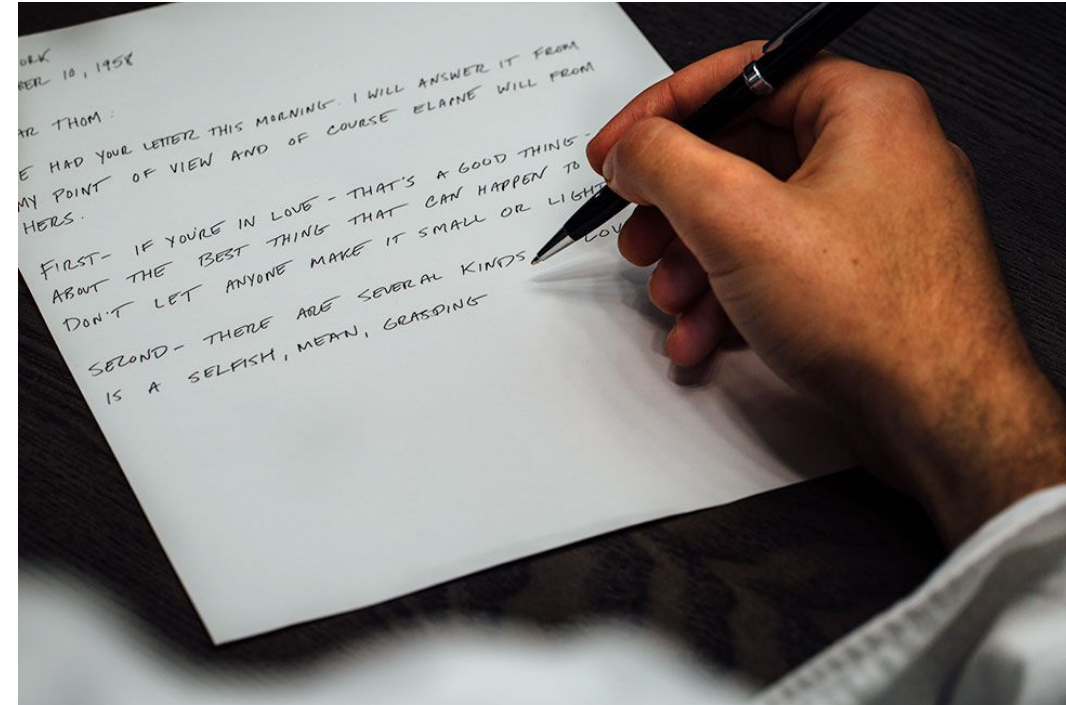 ORK
BER 10, 1958
AR THOM:
E HAD YOUR LETTER THIS MORNING. I WILL ANSWER IT FROM
MY POINT OF VIEW AND OF COURSE ELAPNE WILL FROM
HERS.
FIRST- IF YOU'RE IN LOVE - THAT'S A GOOD THING -
ABOUT THE BEST THING THAT CAN HAPPEN TO
DON'T LET ANYONE MAKE IT SMALL OR LIGHT
SECOND- THERE ARE SEVERAL KINDS LOV
IS A SELFISH, MEAN, GRASDING